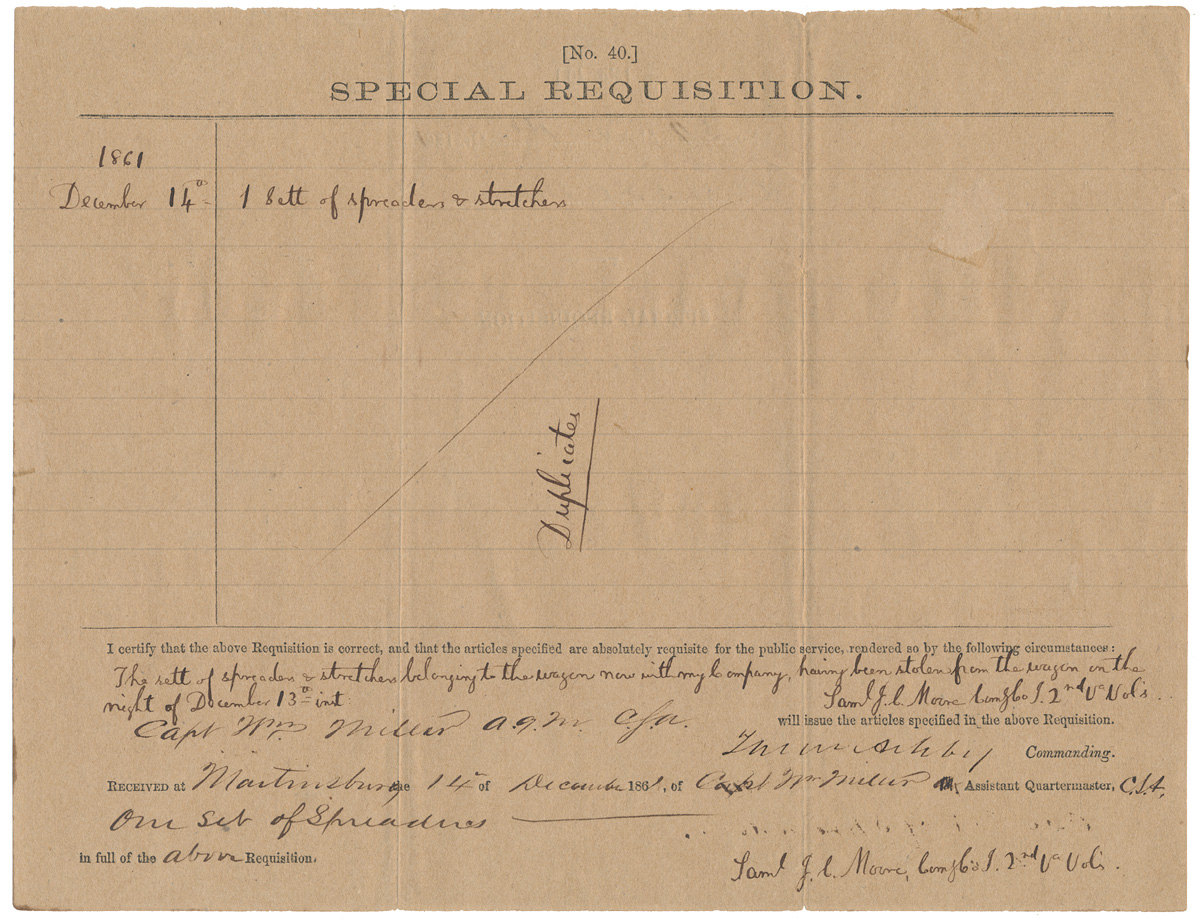 [No. 40.]
SPECIAL REQUISITION.
1861
December 14th 1 Sett of spreaders & stretchers
Duplicates
I certify that the above Requisition is correct, and that the articles specified are absolutely requisite for the public service, rendered so by the following circumstances:
The sett of spreaders & stretchers belonging to the wagon now with my Company, having been stolen from the wagon on the
night of December 13th inst
Saml J. C. Moore Comg Co I. 2nd Va Vols.
Capt Wm Miller A.Q.M. CSA. will issue the articles specified in the above Requisition.
Ashby Commanding.
RECEIVED at Martinsburg the 14th of December 1861, of Capt Wm Miller Assistant Quartermaster, C.S.A,
One set of Spreaders
in full of the above Requisition.
Saml J. C. Moore, Comg Co I. 2nd Va Vols.